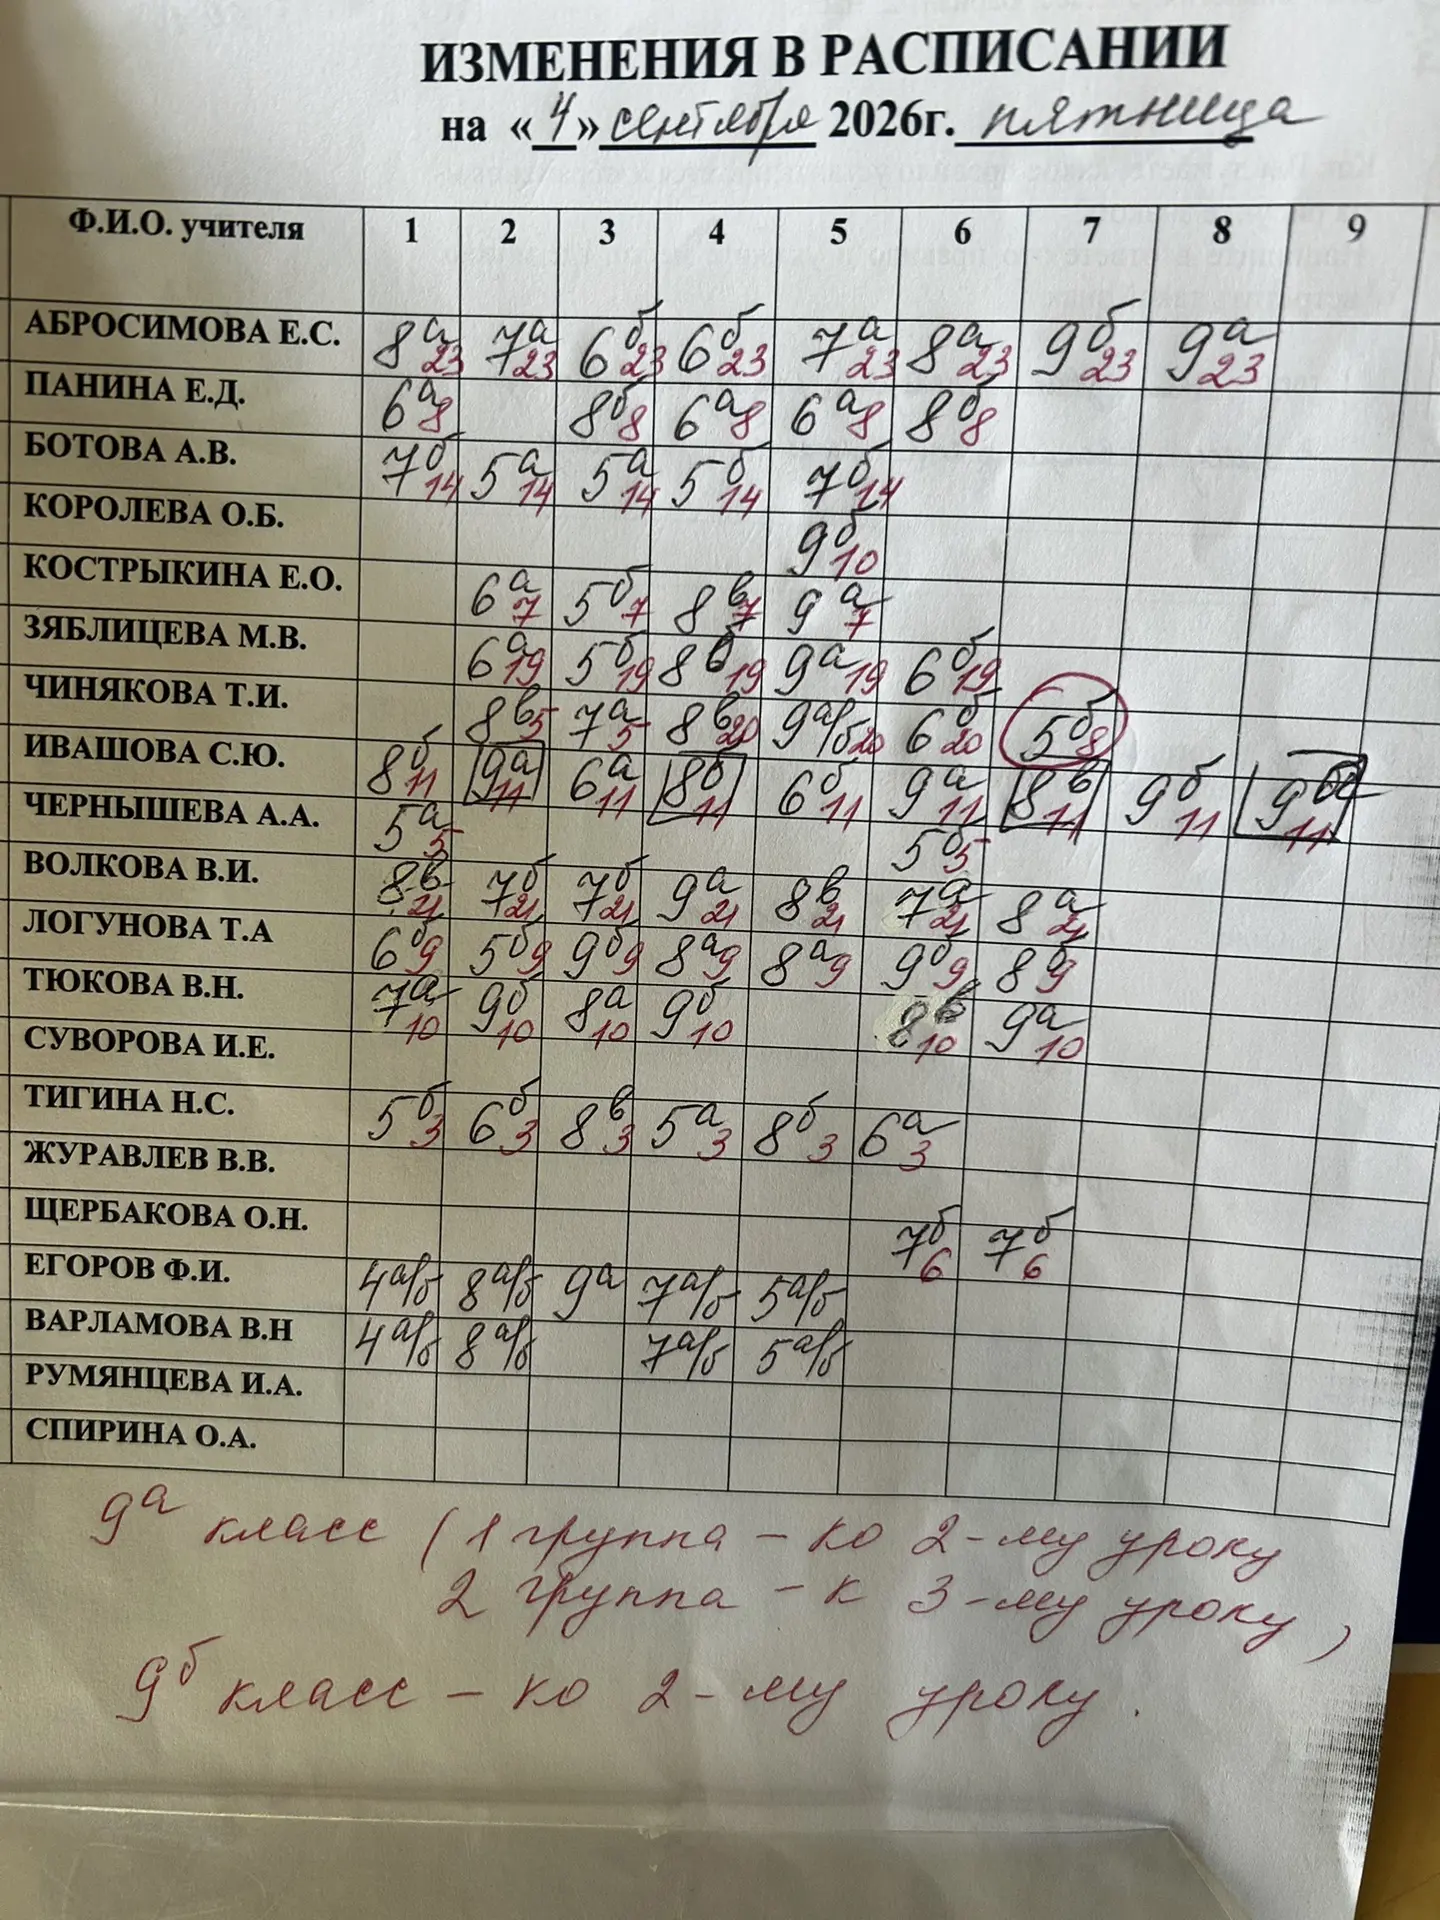 ИЗМЕНЕНИЯ В РАСПИСАНИИ
на «4» сентября 2026г. пятница
Ф.И.О. учителя 1 2 3 4 5 6 7 8 9
АБРОСИМОВА Е.С. 8а 23 7а 23 6б 23 6б 23 7а 23 8а 23 9б 23 9а 23
ПАНИНА Е.Д. 6а 8 8б 8 6а 8 6а 8 8б 8
БОТОВА А.В. 7б 14 5а 14 5а 14 5б 14 7б 14
КОРОЛЕВА О.Б. 9б 10
КОСТРЫКИНА Е.О. 6а 7 5б 7 8в 7 9а 7
ЗЯБЛИЦЕВА М.В. 6а 19 5б 19 8б 19 9а 19 6б 19
ЧИНЯКОВА Т.И. 8в 5 7а 5 8в 20 9а/б 20 6б 20 5б 8
ИВАШОВА С.Ю. 8б 11 9а 11 6а 11 8б 11 6б 11 9а 11 8в 11 9б 11 9 11
ЧЕРНЫШЕВА А.А. 5а 5 5б 5
ВОЛКОВА В.И. 8в 21 7б 21 7б 21 9а 21 8в 21 7а 21 8а 21
ЛОГУНОВА Т.А 6б 9 5б 9 9б 9 8а 9 8а 9 9б 9 8б 9
ТЮКОВА В.Н. 7а 10 9б 10 8а 10 9б 10 8в 10 9а 10
СУВОРОВА И.Е.
ТИГИНА Н.С. 5б 3 6б 3 8в 3 5а 3 8б 3 6а 3
ЖУРАВЛЕВ В.В.
ЩЕРБАКОВА О.Н. 7б 6 7б 6
ЕГОРОВ Ф.И. 4а/б 8а/б 9а 7а/б 5а/б
ВАРЛАМОВА В.Н 4а/б 8а/б 7а/б 5а/б
РУМЯНЦЕВА И.А.
СПИРИНА О.А.
9а класс (1 группа - ко 2-му уроку
2 группа - к 3-му уроку)
9б класс - ко 2-му уроку.